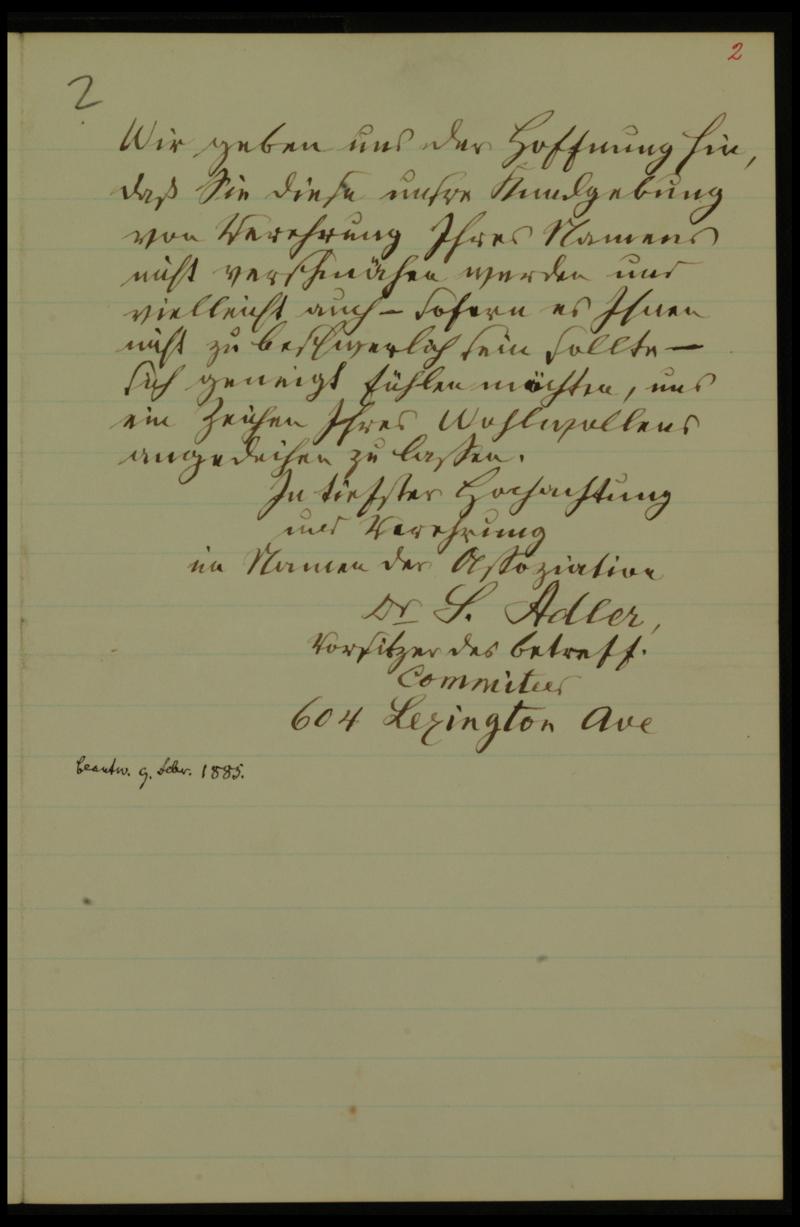 2
2
Wir geben uns der Hoffnung hin,
daß Sie diese unsre Kundgebung
von Verehrung Ihres Namens
nicht verschmähen werden und
vielleicht auch – sofern es Ihnen
nicht zu beschwerlich sein sollte –
sich geneigt fühlen möchten, uns
ein Zeichen Ihres Wohlwollens
angedeihen zu lassen.
In tiefster Hochachtung
und Verehrung
im Namen der Assoziation
Dr S. Adler,
Vorsitzer des betreff.
Commitees
604 Lexington Ave
beantw. 9. Febr. 1885.